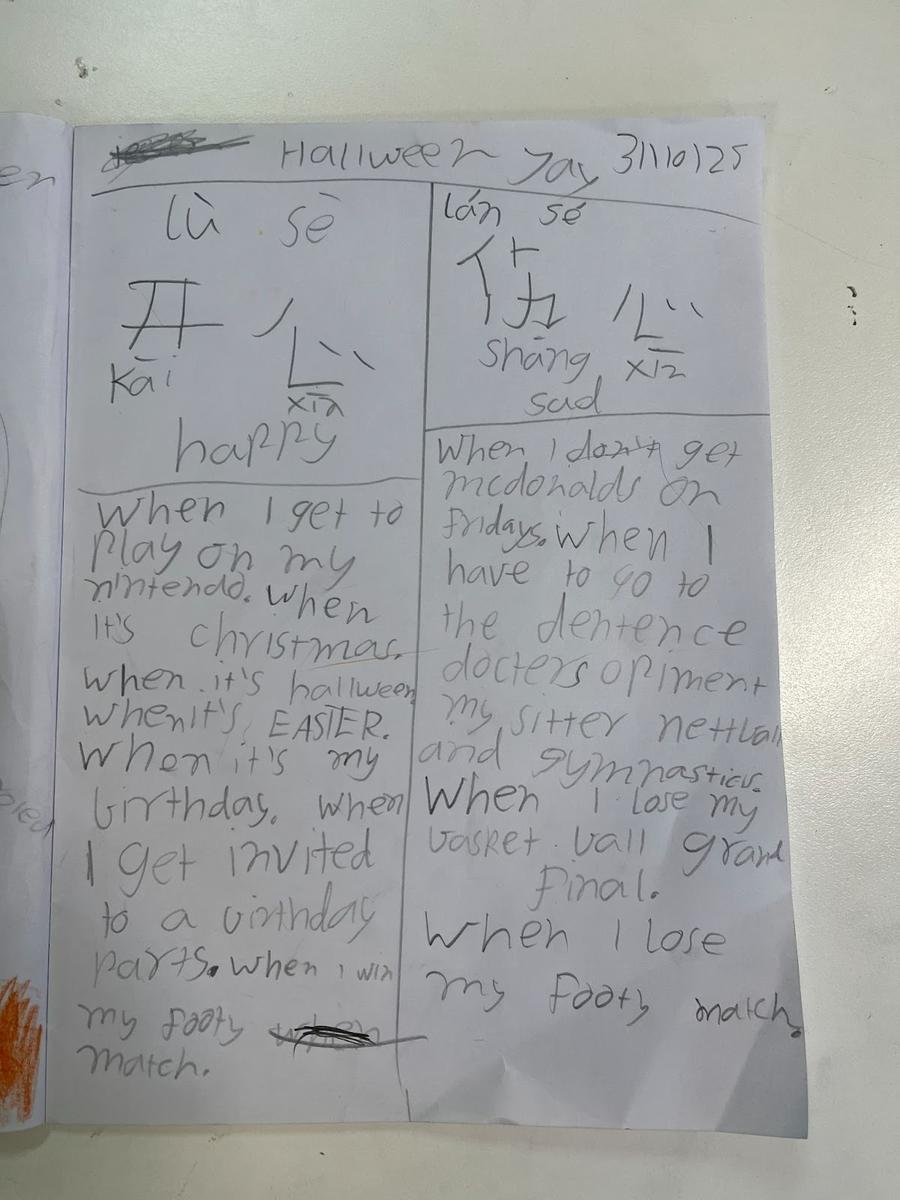 Hallween Jay 31/10/25
lù sè
开 心
kāi xīn
happy
When I get to
play on my
nintendo. When
It's christmas.
when it's hallween
when it's EASTER.
When it's my
birthday. when
I get invited
to a birthday
party. When I win
my footy
match.
lán sé
伤 心
shāng xīn
sad
When I don't get
mcdonalds on
fridays. When I
have to go to
the dentence
docters opiment
my sitter nettball
and gymnasticis.
When I lose my
basket ball grand
final.
When I lose
my footy match.